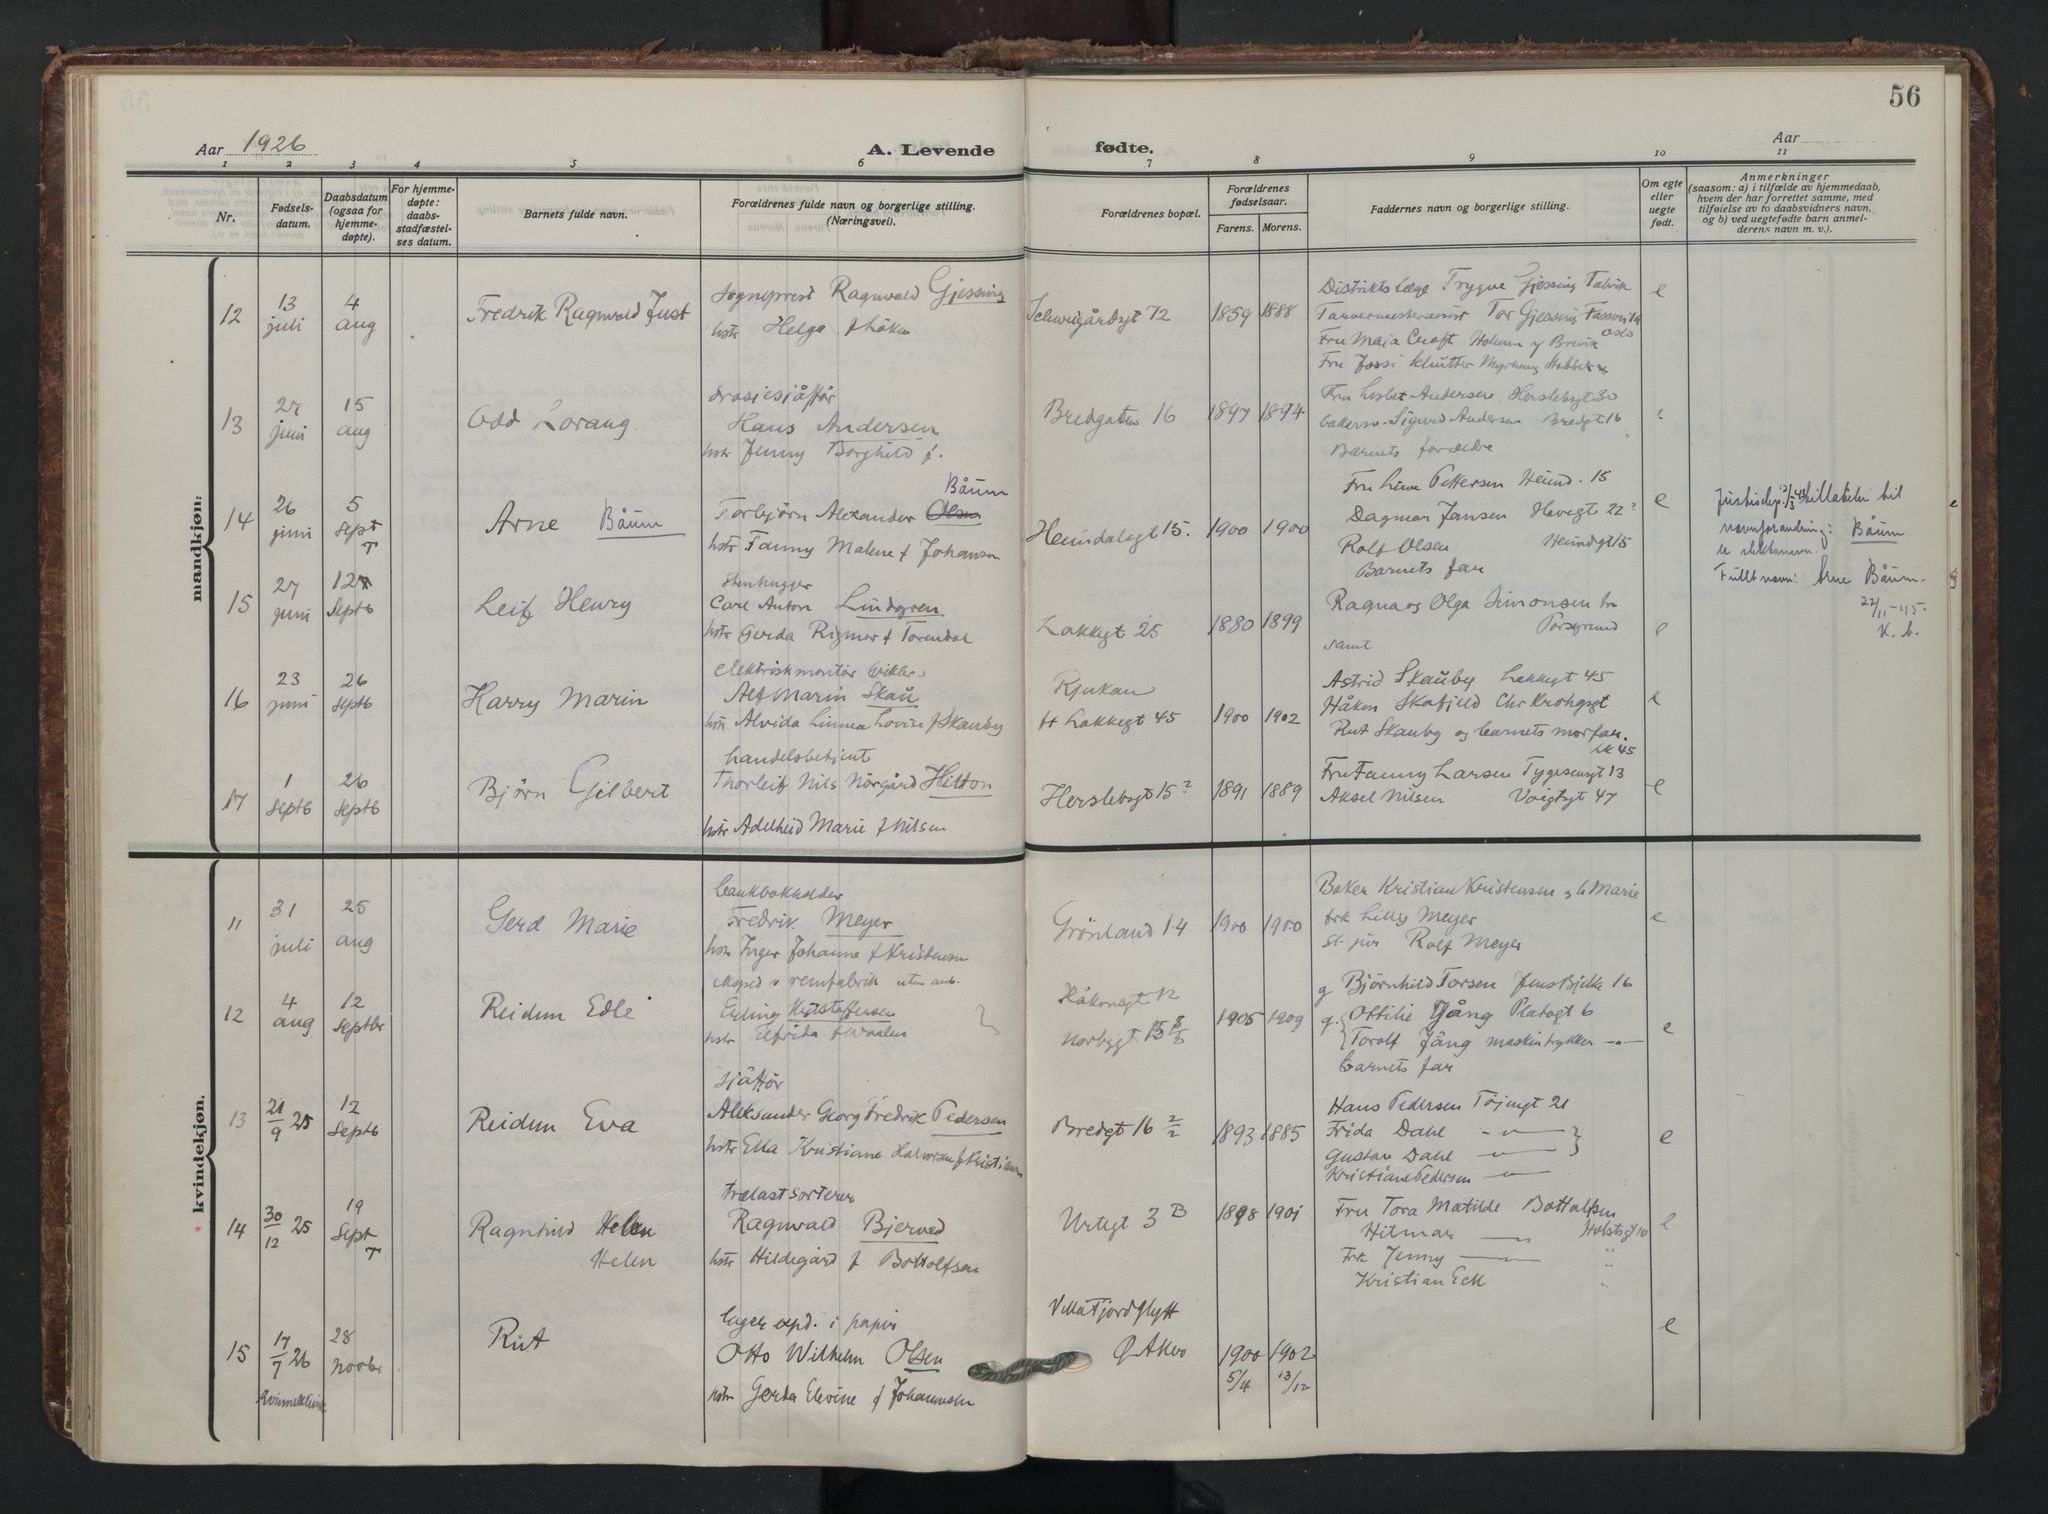 56
Aar 1926
A. Levende fødte.
Aar
1 2 3 4 5 6 7 8 9 10 11
Nr.
Fødsels-
datum.
Daabsdatum
(ogsaa for
hjemme-
døpte).
For hjemme-
døpte:
daabs-
stadfæstel-
ses datum.
Barnets fulde navn.
Forældrenes fulde navn og borgerlige stilling.
(Næringsvei).
Forældrenes bopæl.
Forældrenes
fødselsaar.
Farens. Morens.
Faddernes navn og borgerlige stilling.
Om egte
eller
uegte
født.
Anmerkninger
(saasom: a) i tilfælde av hjemmedaab,
hvem der har forrettet samme, med
tilføielse av to daabsvidners navn,
og b) ved uegtefødt barn anmel-
derens navn m. v.).
mandkjøn:
12
13
juli
4
aug
Fredrik Ragnvald Just
Sogneprest Ragnvald Gjessing
hstr Helga f
Schweigårdsgt 72
1859 1888
Distriktslæge Trygve Gjessing Talvik
Tor Gjessing
Oslo
Fru Maja Croft Holmen pr Brevik
Fru
e
13
27
juni
15
aug
Odd Lorang
drosjesjåffør
Hans Andersen
hstr Jenny Borghild f.
Bredgaten 16
1897 1894
Fru Lisbet Andersen Herslebgt 30
Sigurd Andersen Bredgt 16
Barnets forældre
e
14
26
juni
5
Sept
T
Arne Båum
Båum
Torbjörn Alexander Olsen
hstr Fanny Malene f Johansen
Heimdalsgt 15.
1900 1900
Fru Line Pettersen Heimd. 15
Dagmar Jansen Havegt 22
Rolf Olsen Heimdgt 15
Barnets far
e
tillatelse til
navneforandring: Båum
er slektsnavn.
Fullt navn: Arne Båum.
22/11-45.
K. b.
15
27
juni
12
Septb
Leif Henry
Stenhugger
Carl Anton Lindgren
hstr Gerda Rigmor f Torendal
Lakkegt 25
1880 1899
Ragna og Olga Simonsen
Porsgrund
samt
e
16
23
juni
26
Septb
Harry Marin
elektriskmontör
Alf Marin Skau
hstr Alvida Linnea Lovise f Skauby
Rjukan
Lakkegt 45
1900 1902
Astrid Skauby Lakkegt 45
Håkon Skofjeld Chr Krohgsgt
Rut Skauby og barnets morfar.
Lk 45
e
17
1
Septb
26
Septb
Björn Gilbert
handelsbetjent
Thorleif Nils Nörgård Hilton
hstr Adelheid Marie f Nilsen
Herslebsgt 15
1891 1889
Fru Fanny Larsen Tygesensgt 13
Aksel Nilsen Voigtsgt 47
e
kvindekjøn.
11
31
juli
25
aug
Gerd Marie
bankbokholder
Fredrik Meyer
hstr Inger Johanne f Kristensen
Grönland 14
1900 1900
Baker Kristian Kristensen og h Marie
frk Lilly Meyer
St. jur Rolf Meyer
e
12
4
aug
12
Septbr
Reidun Edle
eksped v remfabrik uten arb.
Erling Kristoffersen
hstr Elfrida f Waalen
Håkonsgt 12
Norbygt 15
1905 1909
g Björnhild Torsen Jens Bjelke 16
g. Ottilie Tjång Platogt 6
Torolf Jång maskintrykker
barnets far
e
13
21/9 25
12
Septb
Reidun Eva
sjåffør
Aleksander Georg Fredrik Pedersen
hstr Ella Kristiane Halvorsen f Kristiansen
Bredgt 16 2/2
1893 1885
Hans Pedersen Töjengt 21
Frida Dahl
Gustav Dahl
Kristiane Pedersen
e
14
30/12 25
19
Sept
T
Ragnhild Helen
Helen
trælastsorterer
Ragnvald Bjerved
hstr Hildegård f Bottolfsen
Urtegt 3 B
1898 1901
Fru Tora Matilde Bottolfsen
Hilmar
Holstsgt 10
Frk Jenny
Kristian Eck
e
15
17/7 26
Kvinneklinik
28
novbr
Rut
lager expd. i papir
Otto Wilhelm Olsen
hstr Gerda Elevine f Johannesen
Villa Fjordglytt
Ø Aker
1900 1902
5/4 13/12
e